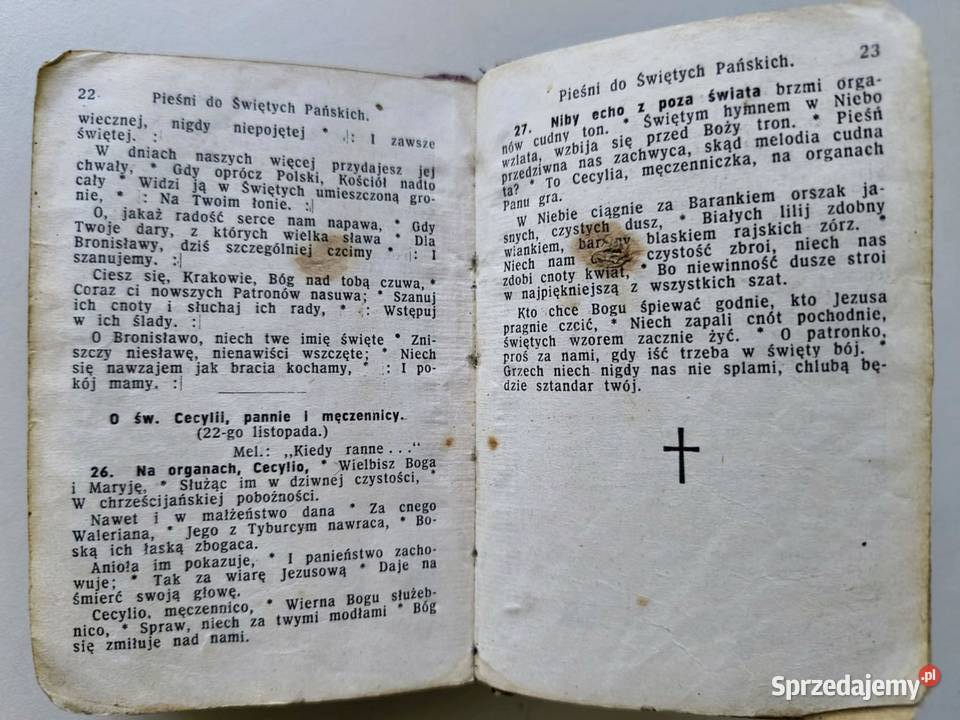 22
Pieśni do Świętych Pańskich.
wiecznej, nigdy niepojętej * :|: I zawsze
świętej. :|
W dniach naszych więcej przydajesz jej
chwały, * Gdy oprócz Polski, Kościół nadto
cały * Widzi ją w Świętych umieszczoną gro-
nie, * |: Na Twoim łonie. :|
O, jakaż radość serce nam napawa, * Gdy
Twoje dary, z których wielka sława * Dla
Bronisławy, dziś szczególniej czcimy * |: I
szanujemy. :|
Ciesz się, Krakowie, Bóg nad tobą czuwa, *
Coraz ci nowszych Patronów nasuwa; * Szanuj
ich cnoty i słuchaj ich rady, * |: Wstępuj
w ich ślady. :|
O Bronisławo, niech twe imię święte * Zni-
szczy niesławę, nienawiści wszczęte; * Niech
się nawzajem jak bracia kochamy, * |: I po-
kój mamy. :|
O św. Cecylii, pannie i męczennicy.
(22-go listopada.)
Mel.: „Kiedy ranne . . .“
26. Na organach, Cecylio, * Wielbisz Boga
i Maryję, * Służąc im w dziwnej czystości, *
W chrześcijańskiej pobożności.
Nawet i w małżeństwo dana * Za cnego
Waleriana, * Jego z Tyburcym nawraca, * Bo-
ską ich łaską zbogaca.
Anioła im pokazuje, * I panieństwo zacho-
wuje; * Tak za wiarę Jezusową * Daje na
śmierć swoją głowę.
Cecylio, męczennico, * Wierna Bogu służeb-
nico, * Spraw, niech za twymi modłami * Bóg
się zmiłuje nad nami.
23
Pieśni do Świętych Pańskich.
27. Niby echo z poza świata brzmi orga-
nów cudny ton. * Świętym hymnem w Niebo
wzlata, wzbija się przed Boży tron. * Pieśń
przedziwna nas zachwyca, skąd melodia cudna
ta? * To Cecylia, męczenniczka, na organach
Panu gra.
W Niebie ciągnie za Barankiem orszak ja-
snych, czystych dusz, * Białych lilij zdobny
wiankiem, blaskiem rajskich zórz. *
Niech nam czystość zbroi, niech nas
zdobi cnoty kwiat, * Bo niewinność dusze stroi
w najpiękniejszą z wszystkich szat.
Kto chce Bogu śpiewać godnie, kto Jezusa
pragnie czcić, * Niech zapali cnót pochodnie,
świętych wzorem zacznie żyć. * O patronko,
proś za nami, gdy iść trzeba w święty bój. *
Grzech niech nigdy nas nie splami, chlubą bę-
dzie sztandar twój.
Sprzedajemy.pl